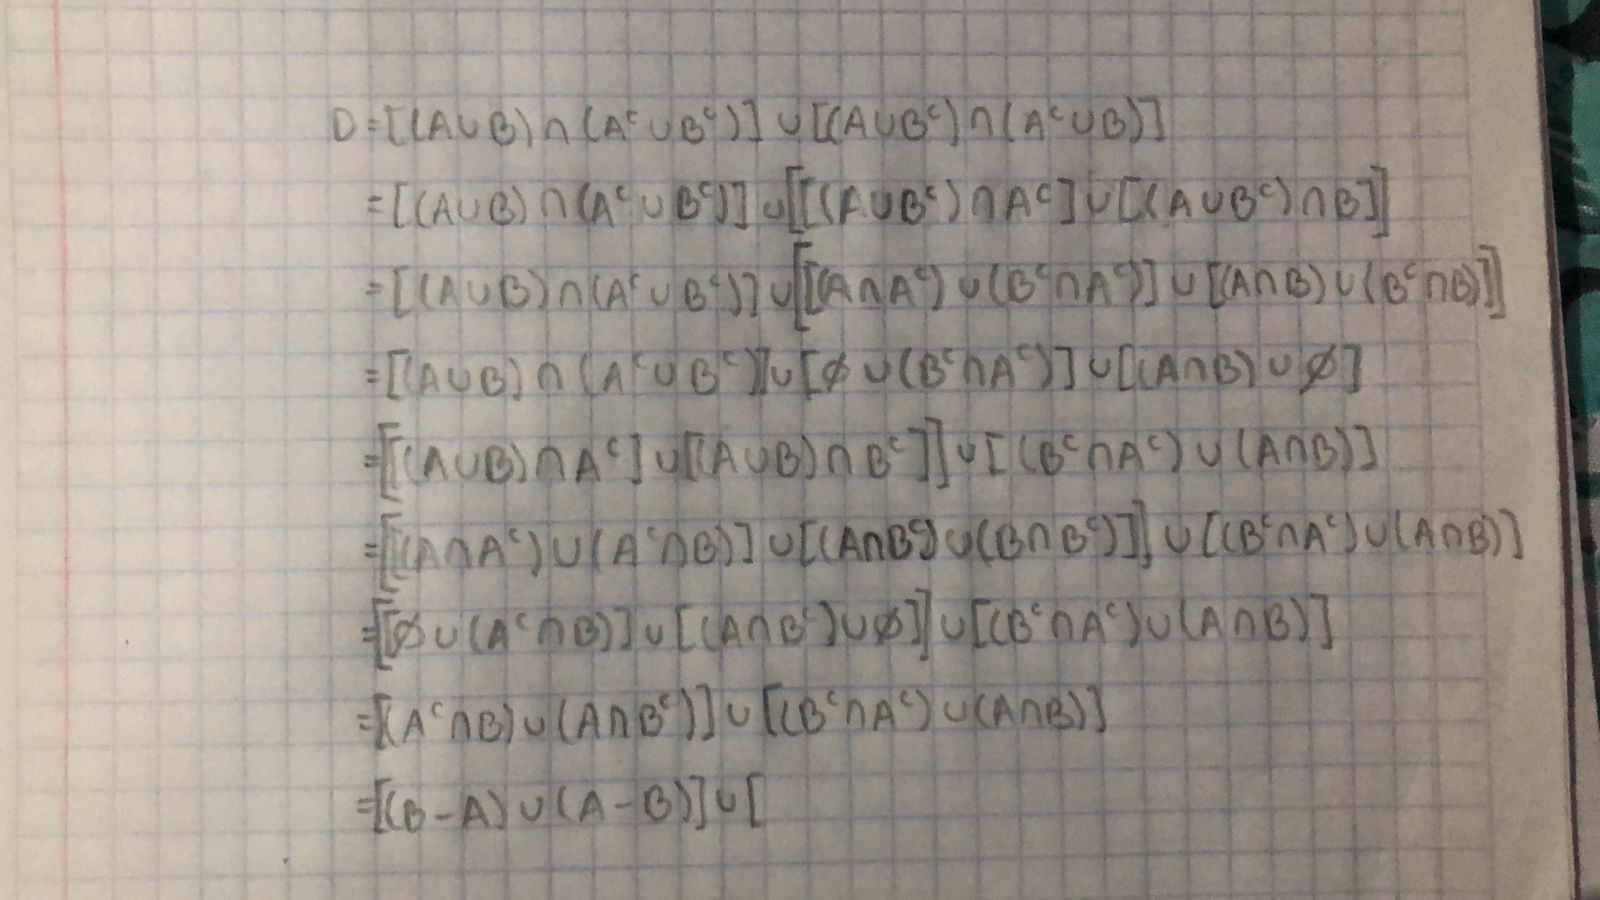 D = [(A∪B)∩(Aᶜ∪Bᶜ)] ∪ [(A∪Bᶜ]∩(Aᶜ∪B)]
= [(A∪B)∩(Aᶜ∪Bᶜ)] ∪ [[(A∪Bᶜ)∩Aᶜ] ∪ [(A∪Bᶜ)∩B]]
= [(A∪B)∩(Aᶜ∪Bᶜ)] ∪ [[(A∩Aᶜ)∪(Bᶜ∩Aᶜ)] ∪ [(A∩B)∪(Bᶜ∩B)]]
= [(A∪B)∩(Aᶜ∪Bᶜ)] ∪ [∅∪(Bᶜ∩Aᶜ)] ∪ [(A∩B)∪∅]
= [[(A∪B)∩Aᶜ] ∪ [(A∪B)∩Bᶜ]] ∪ [(Bᶜ∩Aᶜ)∪(A∩B)]
= [[(A∩Aᶜ)∪(Aᶜ∩B)] ∪ [(A∩Bᶜ)∪(B∩Bᶜ)]] ∪ [(Bᶜ∩Aᶜ)∪(A∩B)]
= [[∅∪(Aᶜ∩B)] ∪ [(A∩Bᶜ)∪∅]] ∪ [(Bᶜ∩Aᶜ)∪(A∩B)]
= [(Aᶜ∩B)∪(A∩Bᶜ)] ∪ [(Bᶜ∩Aᶜ)∪(A∩B)]
= [(B-A)∪(A-B)] ∪ [